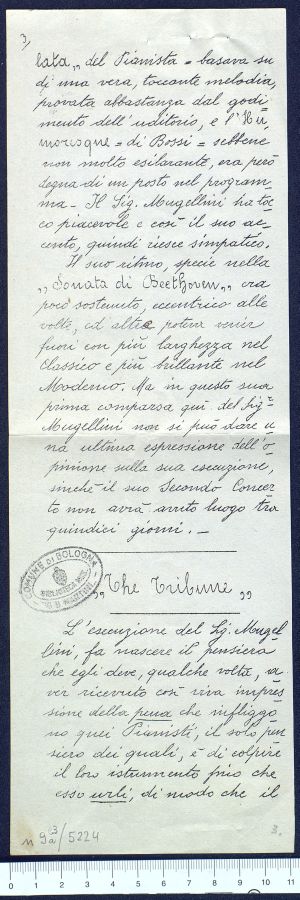 3,
lata„ del Pianista = basava su
di una vera, toccante melodia,
provata abbastanza dal godi-
mento dell'uditorio, e l'Hu-
moresque = di Bossi = sebbene
non molto esilarante, era però
degna di un posto nel program-
ma - Il Sig. Mugellini ha toc-
co piacevole e così il suo ac-
cento, quindi riesce simpatico.
Il suo ritmo, specie nella
„Sonata di Beethoven„ era
poco sostenuto, eccentrico alle
volte, ed altre poteva venir
fuori con più larghezza nel
Classico e più brillante nel
Moderno. Ma in questa sua
prima comparsa qui del Sig.r
Mugellini non si può dare u-
na ultima espressione dell'o-
pinione sulla sua esecuzione,
sinchè il suo Secondo Concer-
to non avrà avuto luogo tra
quindici giorni. -
COMUNE DI BOLOGNA
„The Tribune„
L'esecuzione del Sg. Mugel-
lini, fa nascere il pensiero
che egli deve, qualche volta, a-
ver ricevuto così viva impres-
sione della pena che infliggo-
no quei Pianisti, il solo pen-
siero dei quali, è di colpire
il loro istrumento fino che
esso urli, di modo che il
5224
3.
0 1 2 3 4 5 6 7 8 9 10 11